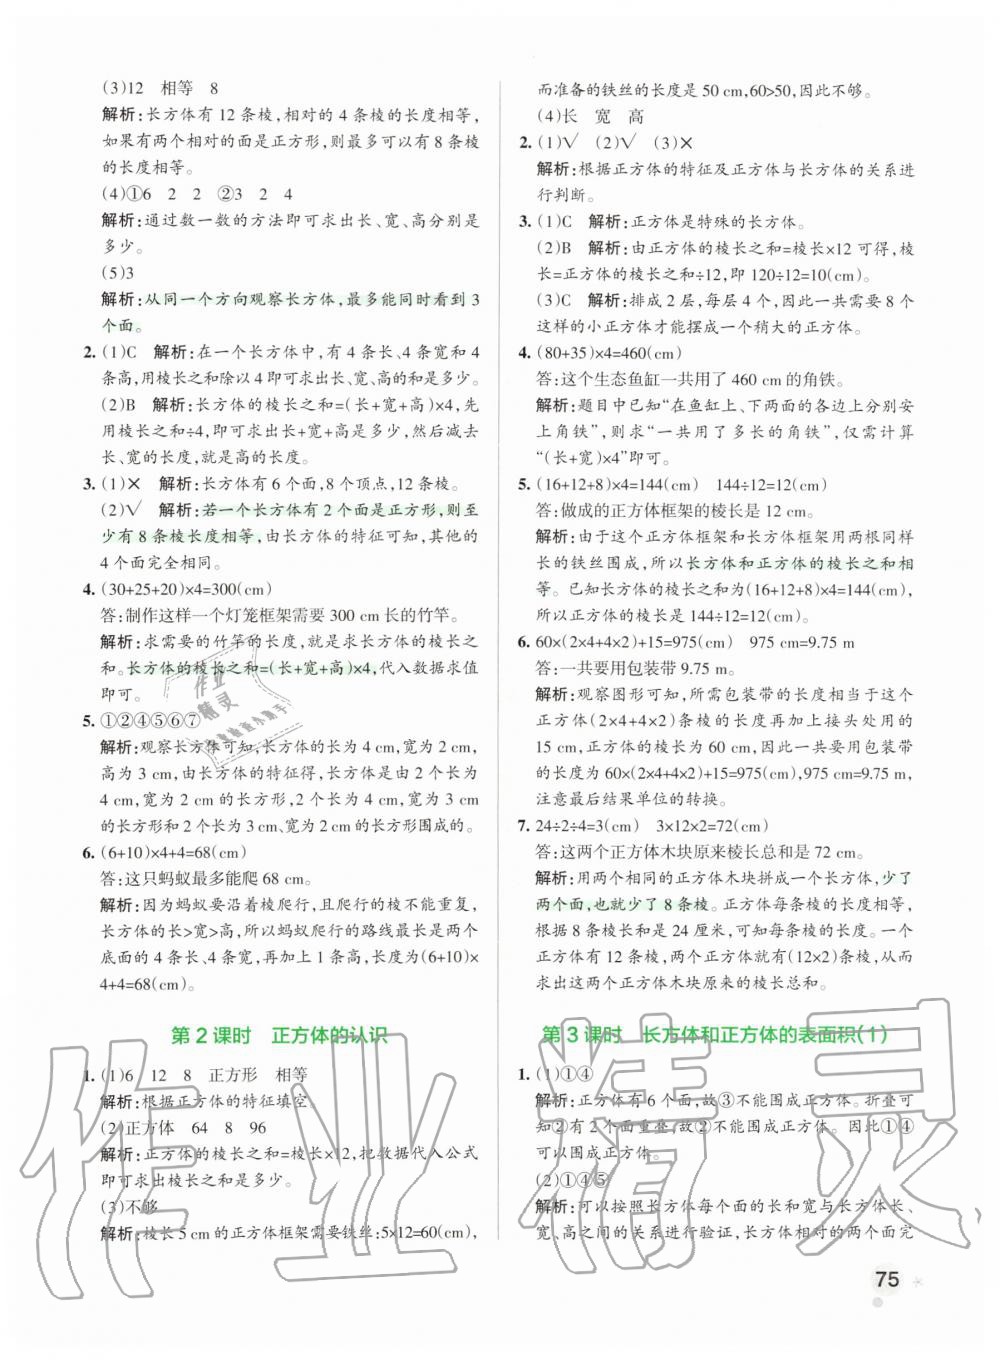 (3)12　相等　8
解析:长方体有 12 条棱,相对的 4 条棱的长度相等,
如果有两个相对的面是正方形,则最多可以有 8 条棱
的长度相等。
(4)①6　2　2　②3　2　4
解析:通过数一数的方法即可求出长、宽、高分别是
多少。
(5)3
解析:从同一个方向观察长方体,最多能同时看到 3
个面。
2. (1)C　解析:在一个长方体中,有 4 条长、4 条宽和 4
条高,用棱长之和除以 4 即可求出长、宽、高的和是多少。
(2)B　解析:长方体的棱长之和=(长+宽+高)×4,先
用棱长之和÷4,求出长+宽+高是多少,然后减去
长、宽的长度,就是高的长度。
3. (1)×　解析:长方体有 6 个面,8 个顶点,12 条棱。
(2)√　解析:若一个长方体有 2 个面是正方形,则至
少有 8 条棱长度相等,由长方体的特征可知,其他的
4 个面完全相同。
4. (30+25+20)×4=300(cm)
答:制作这样一个灯笼框架需要 300 cm 长的竹竿。
解析:求需要的竹竿的长度,就是求长方体的棱长之
和。长方体的棱长之和=(长+宽+高)×4,代入数据求值
即可。
5. ①②④⑤⑥⑦
解析:观察长方体可知,长方体的长为 4 cm,宽为 2 cm,
高为 3 cm,由长方体的特征得,长方体是由 2 个长为
4 cm,宽为 2 cm 的长方形,2 个长为 4 cm、宽为 3 cm
的长方形和 2 个长为 3 cm、宽为 2 cm 的长方形围成的。
6. (6+10)×4+4=68(cm)
答:这只蚂蚁最多能爬 68 cm。
解析:因为蚂蚁要沿着棱爬行,且爬行的棱不能重复,
长方体的长>宽>高,所以蚂蚁爬行的路线最长是两个
底面的 4 条长、4 条宽,再加上 1 条高,长度为(6+10)×
4+4=68(cm)。
第 2 课时　正方体的认识
1. (1)6　12　8　正方形　相等
解析:根据正方体的特征填空。
(2)正方体　64　8　96
解析:正方体的棱长之和=棱长×12,把数据代入公式
即可求出棱长之和是多少。
(3)不够
解析:棱长 5 cm 的正方体框架需要铁丝:5×12=60(cm),
而准备的铁丝的长度是 50 cm,60>50,因此不够。
(4)长　宽　高
2. (1)√　(2)√　(3)×
解析:根据正方体的特征及正方体与长方体的关系进
行判断。
3. (1)C　解析:正方体是特殊的长方体。
(2)B　解析:由正方体的棱长之和=棱长×12 可得,棱
长=正方体的棱长之和÷12,即 120÷12=10(cm)。
(3)C　解析:排成 2 层,每层 4 个,因此一共需要 8 个
这样的小正方体才能摆成一个稍大的正方体。
4. (80+35)×4=460(cm)
答:这个生态鱼缸一共用了 460 cm 的角铁。
解析:题目中已知“在鱼缸上、下两面的各边分别安
上角铁”,则求“一共用了多长的角铁”,仅需计算
“(长+宽)×4”即可。
5. (16+12+8)×4=144(cm)　144÷12=12(cm)
答:做成的正方体框架的棱长是 12 cm。
解析:由于这个正方体框架和长方体框架用两根同样
长的铁丝围成,所以长方体和正方体的棱长之和相
等。已知长方体的棱长之和为(16+12+8)×4=144(cm),
所以正方体的棱长是 144÷12=12(cm)。
6. 60×(2×4+4×2)+15=975(cm)　975 cm=9.75 m
答:一共要用包装带 9.75 m。
解析:观察图形可知,所需包装带的长度相当于这个
正方体(2×4+4×2)条棱的长度再加上接头处用的
15 cm,正方体的棱长为 60 cm,因此一共要用包装带
的长度为 60×(2×4+4×2)+15=975(cm),975 cm=9.75 m,
注意最后结果单位的转换。
7. 24÷2÷4=3(cm)　3×12×2=72(cm)
答:这两个正方体木块原来棱长总和是 72 cm。
解析:用两个相同的正方体木块拼成一个长方体,少了
两个面,也就少了 8 条棱。正方体每条棱的长度相等,
根据 8 条棱长和是 24 厘米,可知每条棱的长度。一个
正方体有 12 条棱,两个正方体就有(12×2)条棱,从而
求出这两个正方体木块原来的棱长总和。
第 3 课时　长方体和正方体的表面积(1)
1. (1)①④
解析:正方体有 6 个面,故③不能围成正方体。折叠可
知②有 2 个面重叠,故②不能围成正方体。因此①④
可以围成正方体。
(2)①④⑤
解析:可以按照长方体每个面的长和宽与长方体长、
宽、高之间的关系进行验证,长方体相对的两个面完
75
作业精灵
作业
精灵